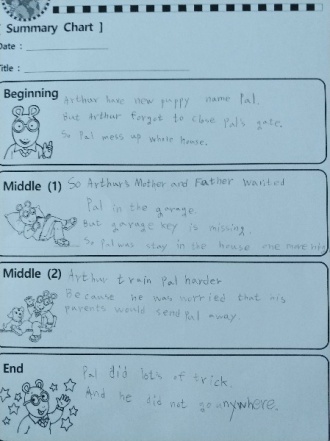 [ Summary Chart ]
Date :
Title :
Beginning
Arthur have new puppy name Pal.
But Arthur forgot to close pal's gate.
So Pal mess up whole house.
Middle (1)
So Arthur's Mother and Father wanted
Pal in the garage.
But garage key is missing.
So Pal was stay in the house one more
Middle (2)
Arthur train Pal harder
Because he was worried that his
parents would send Pal away.
End
Pal did lots of trick.
And he did not go anywhere.